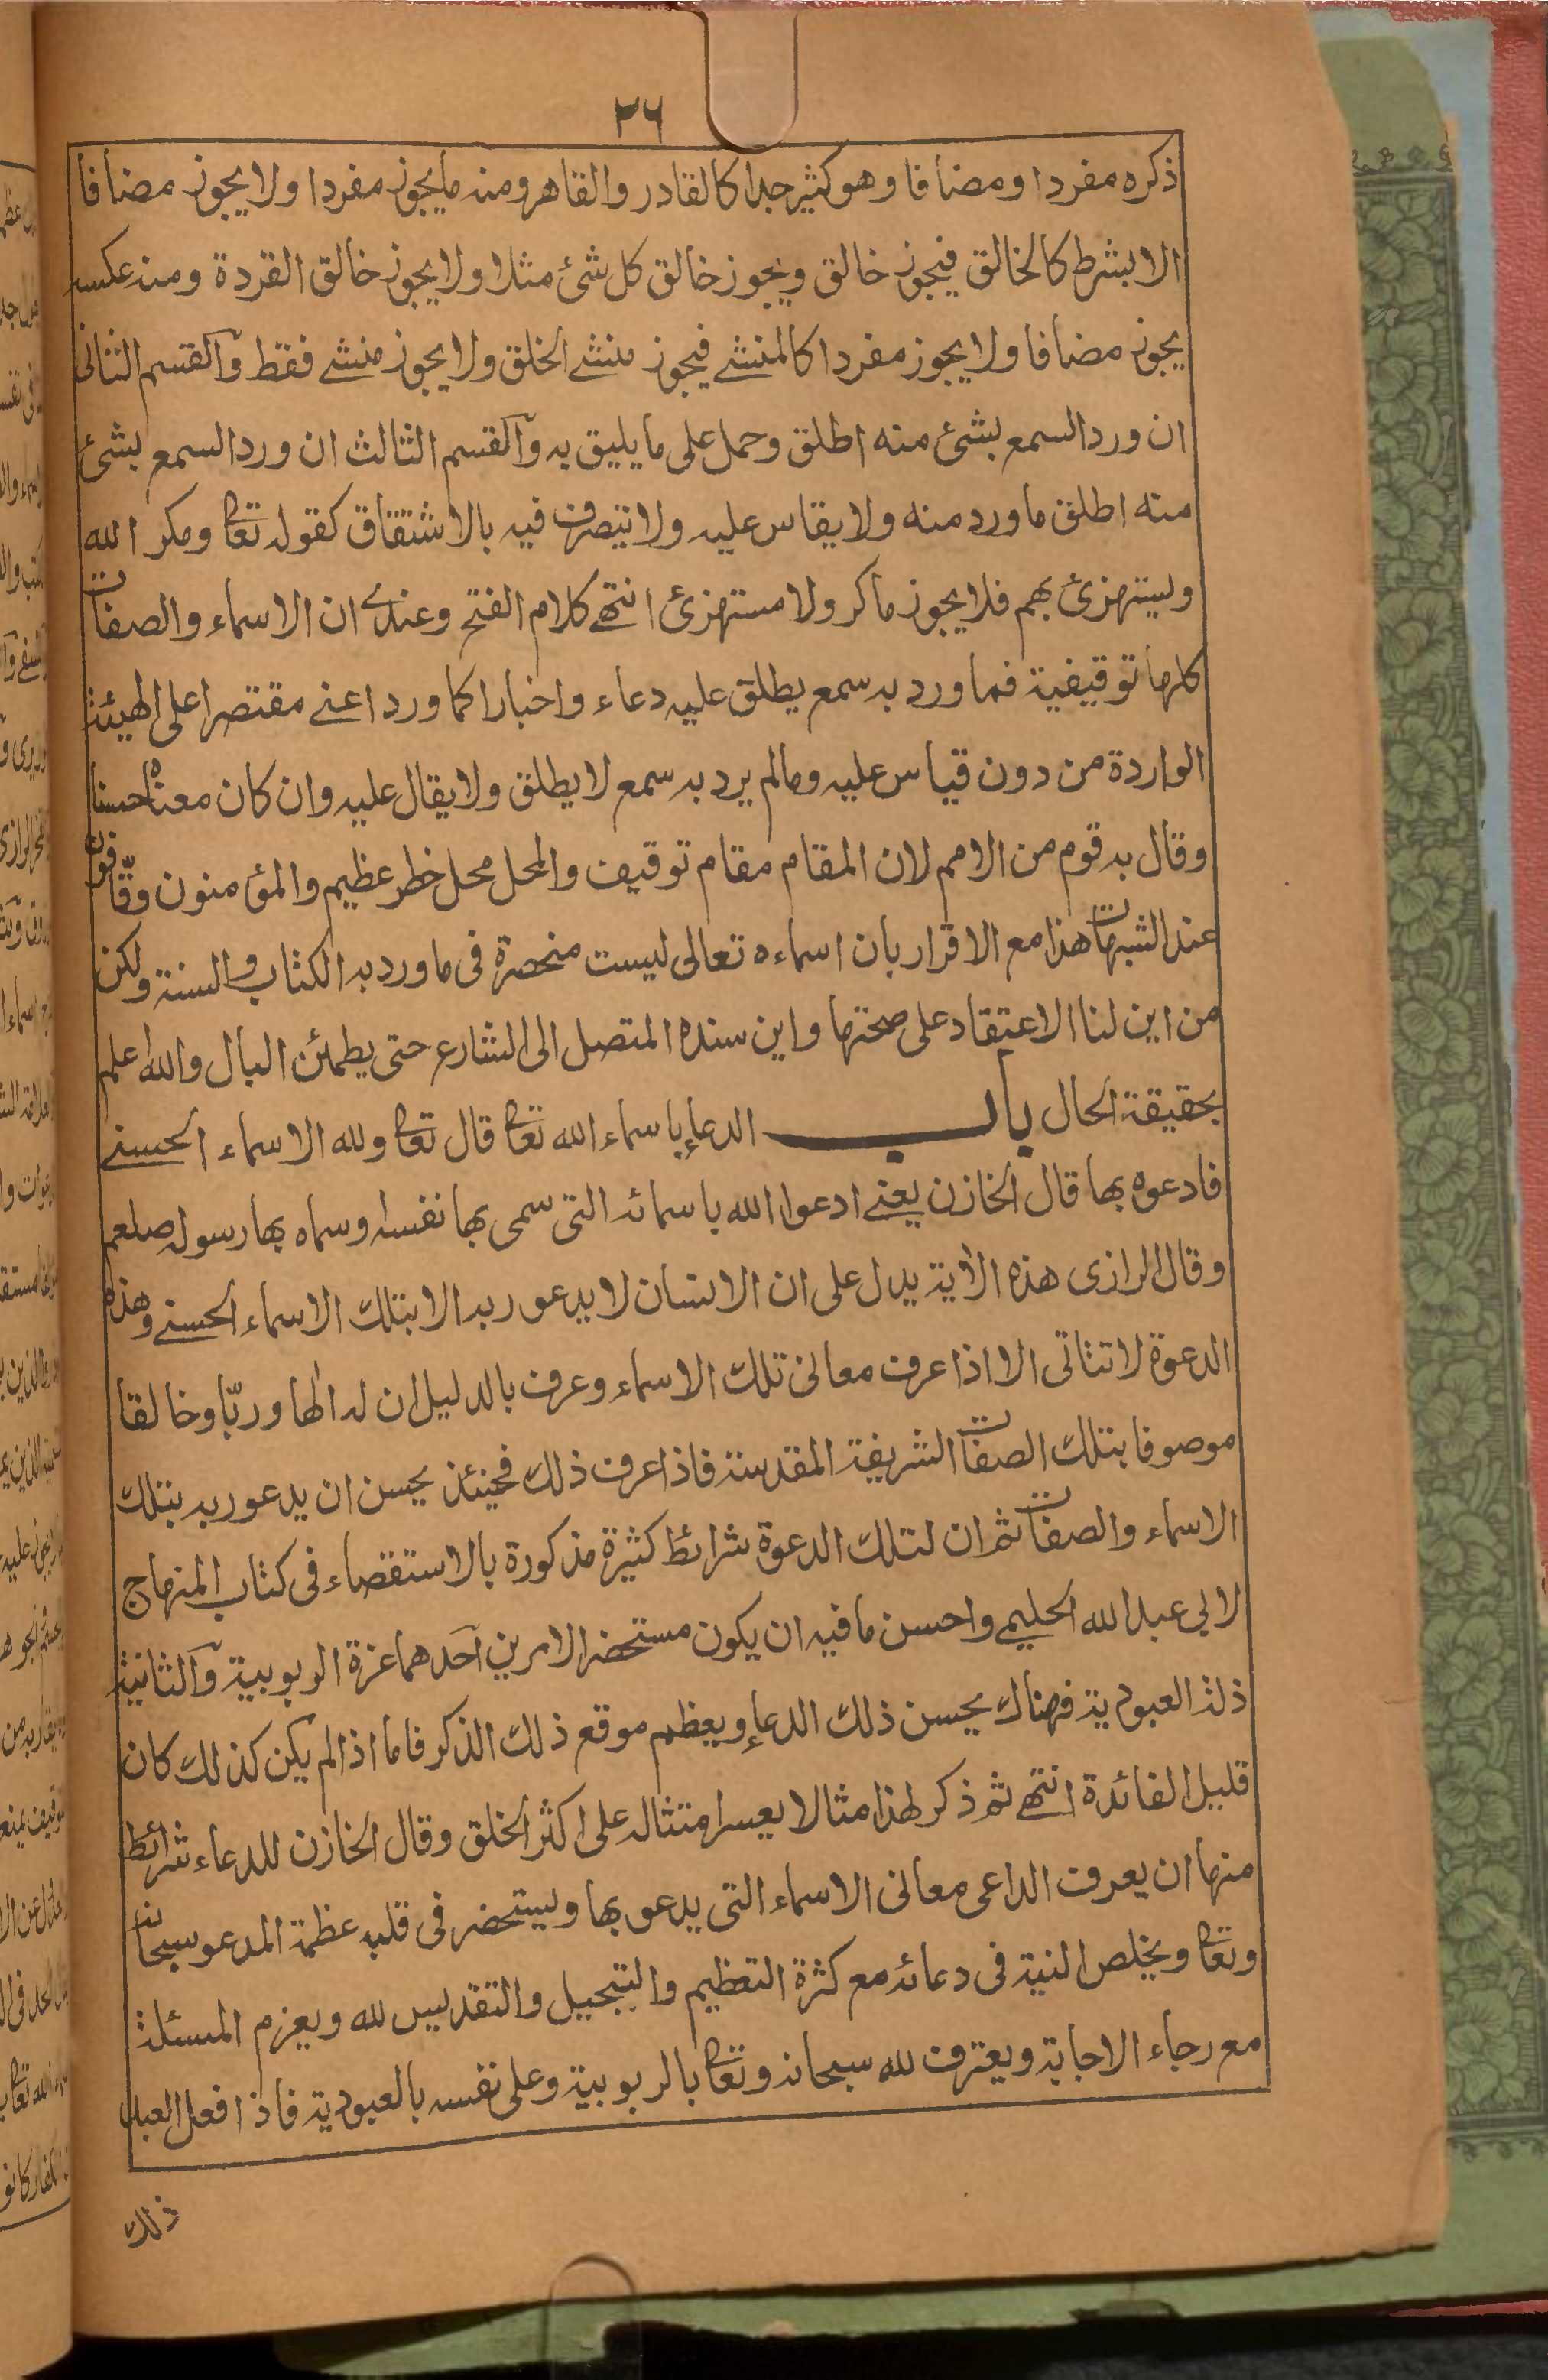 ٢٦
ذكره مفردا ومضافا وهو كثير جدا كالقادر والقاهر ومنه ما يجوز مفردا ولا يجوز مضافا
الا بشرط كالخالق فيجوز خالق ويجوز خالق كل شئ مثلا ولا يجوز خالق القردة ومنه عكسه
يجوز مضافا ولا يجوز مفردا كالمنشے فيجوز منشے الخلق ولا يجوز منشے فقط والقسم الثانى
ان ورد السمع بشئ منه اطلق وحمل على ما يليق به والقسم الثالث ان ورد السمع بشئ
منه اطلق ما ورد منه ولا يقاس عليه ولا يتصرف فيه بالاشتقاق كقوله تعا ومكر الله
ويستهزئ بهم فلا يجوز ماكر ولا مستهزئ انتهے كلام الفتح وعندے ان الاسماء والصفات
كلها توقيفية فما ورد به سمع يطلق عليه دعاء واخبارا كما ورد اعنے مقتصرا على الهيئة
الواردة من دون قياس عليه وما لم يرد به سمع لا يطلق ولا يقال عليه وان كان معناه حسنا
وقال به قوم من الامم لان المقام مقام توقيف والمحل محل خطر عظيم والمؤمنون وقّافون
عند الشبهات هذا مع الاقرار بان اسماءه تعالى ليست منحصرة فى ما ورد به الكتاب والسنة ولكن
من اين لنا الاعتقاد على صحتها واين سنده المتصل الى الشارع حتى يطمئن البال والله اعلم
بحقيقة الحال باب الدعاء باسماء الله تعا قال تعا ولله الاسماء الحسنے
فادعوه بها قال الخازن يعنے ادعوا الله باسمائه التى سمى بها نفسه وسماه بها رسوله صلعم
وقال الرازى هذه الاية يدل على ان الانسان لا يدعو ربه الا بتلك الاسماء الحسنے وهذه
الدعوة لا تتاتى الا اذا عرف معانى تلك الاسماء وعرف بالدليل ان له الها وربّا وخالقا
موصوفا بتلك الصفات الشريفة المقدسة فاذا عرف ذلك فحينئذ يحسن ان يدعو ربه بتلك
الاسماء والصفات ثم ان لتلك الدعوة شرائط كثيرة مذكورة بالاستقصاء فى كتاب المنهاج
لابي عبد الله الحليمي واحسن ما فيه ان يكون مستحضرا لامرين احدهما عزة الربوبية والثانية
ذلة العبودية فهناك يحسن ذلك الدعاء ويعظم موقع ذلك الذكر فاما اذا لم يكن كذلك كان
قليل الفائدة انتهے ثم ذكر لهذا مثالا يعسر امتثاله على اكثر الخلق وقال الخازن للدعاء شرائط
منها ان يعرف الداعى معانى الاسماء التى يدعو بها ويستحضر فى قلبه عظمة المدعو سبحانه
وتعا ويخلص النية فى دعائه مع كثرة التعظيم والتبجيل والتقديس لله ويعزم المسئلة
مع رجاء الاجابة ويعترف لله سبحانه وتعا بالربوبية وعلى نفسه بالعبودية فاذا فعل العبد
ذلك